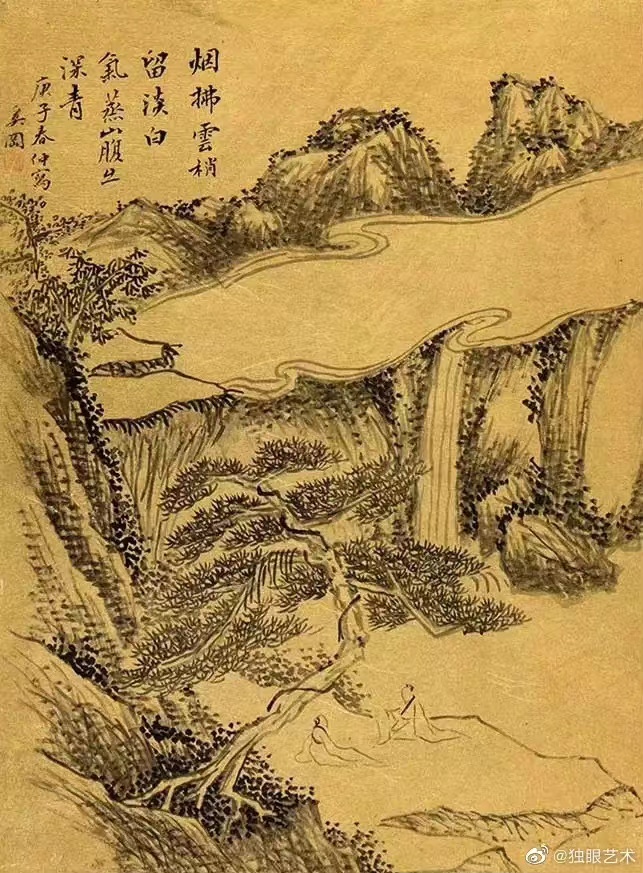 烟拂雲梢
留淡白
氣蒸山腹出
深青
庚子春仲寫
奚岡
@独眼艺术